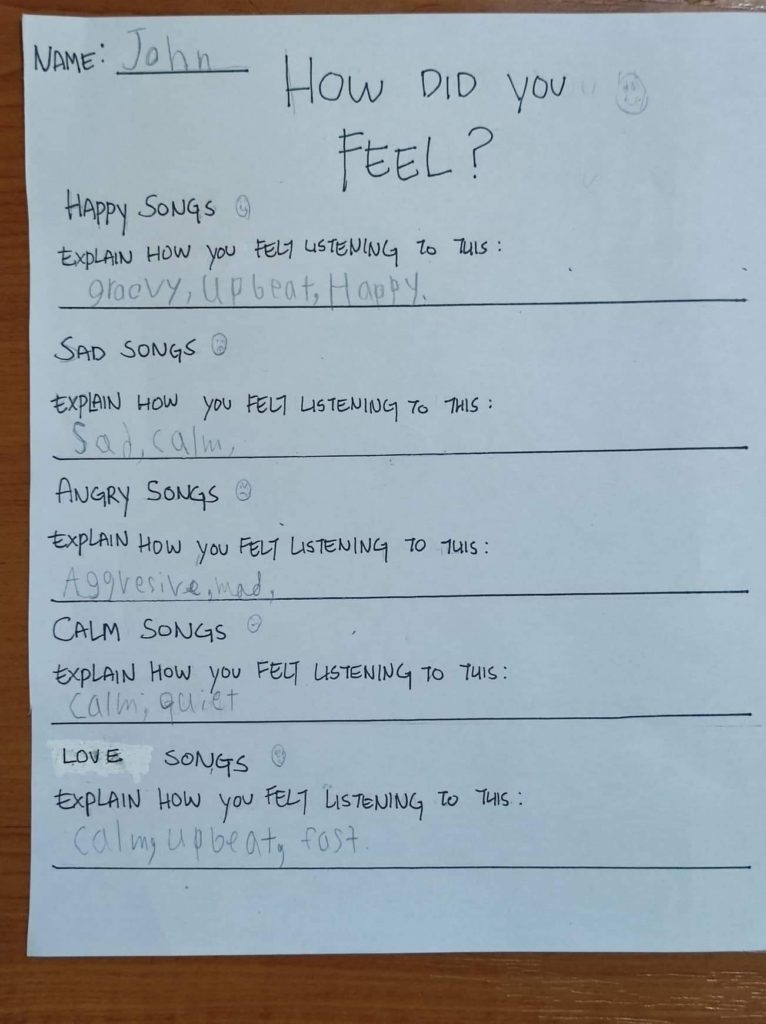 NAME: John
HOW DID YOU
FEEL?
HAPPY SONGS
EXPLAIN HOW YOU FELT LISTENING TO THIS:
groovy, Upbeat, Happy.
SAD SONGS
EXPLAIN HOW YOU FELT LISTENING TO THIS:
Sad, calm,
ANGRY SONGS
EXPLAIN HOW YOU FELT LISTENING TO THIS:
Aggresive, mad,
CALM SONGS
EXPLAIN HOW YOU FELT LISTENING TO THIS:
Calm, quiet
LOVE SONGS
EXPLAIN HOW YOU FELT LISTENING TO THIS:
Calm, upbeat, fast.